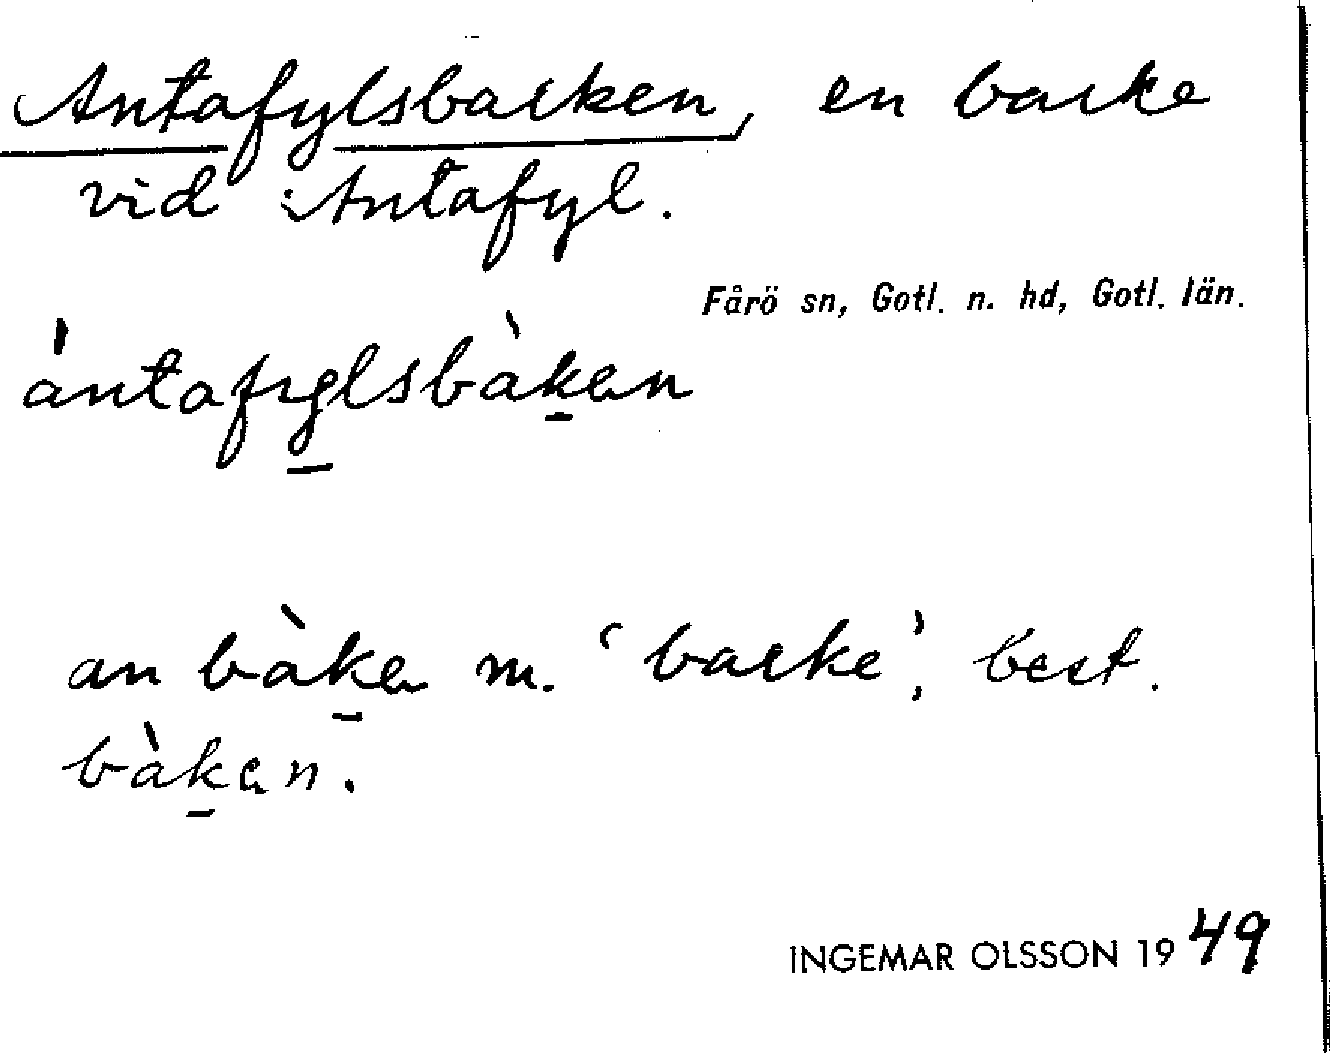 Antafylsbacken, en backe
vid Antafyl.
Fårö sn, Gotl. n. hd, Gotl. län.
ántafylsbàk̲ən
an bàk̲ə m. ‘backe’, best.
bàk̲ən.
INGEMAR OLSSON 1949